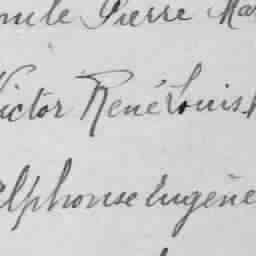 Emile Pierre Mar
Victor René Louis
Alphonse Eugène